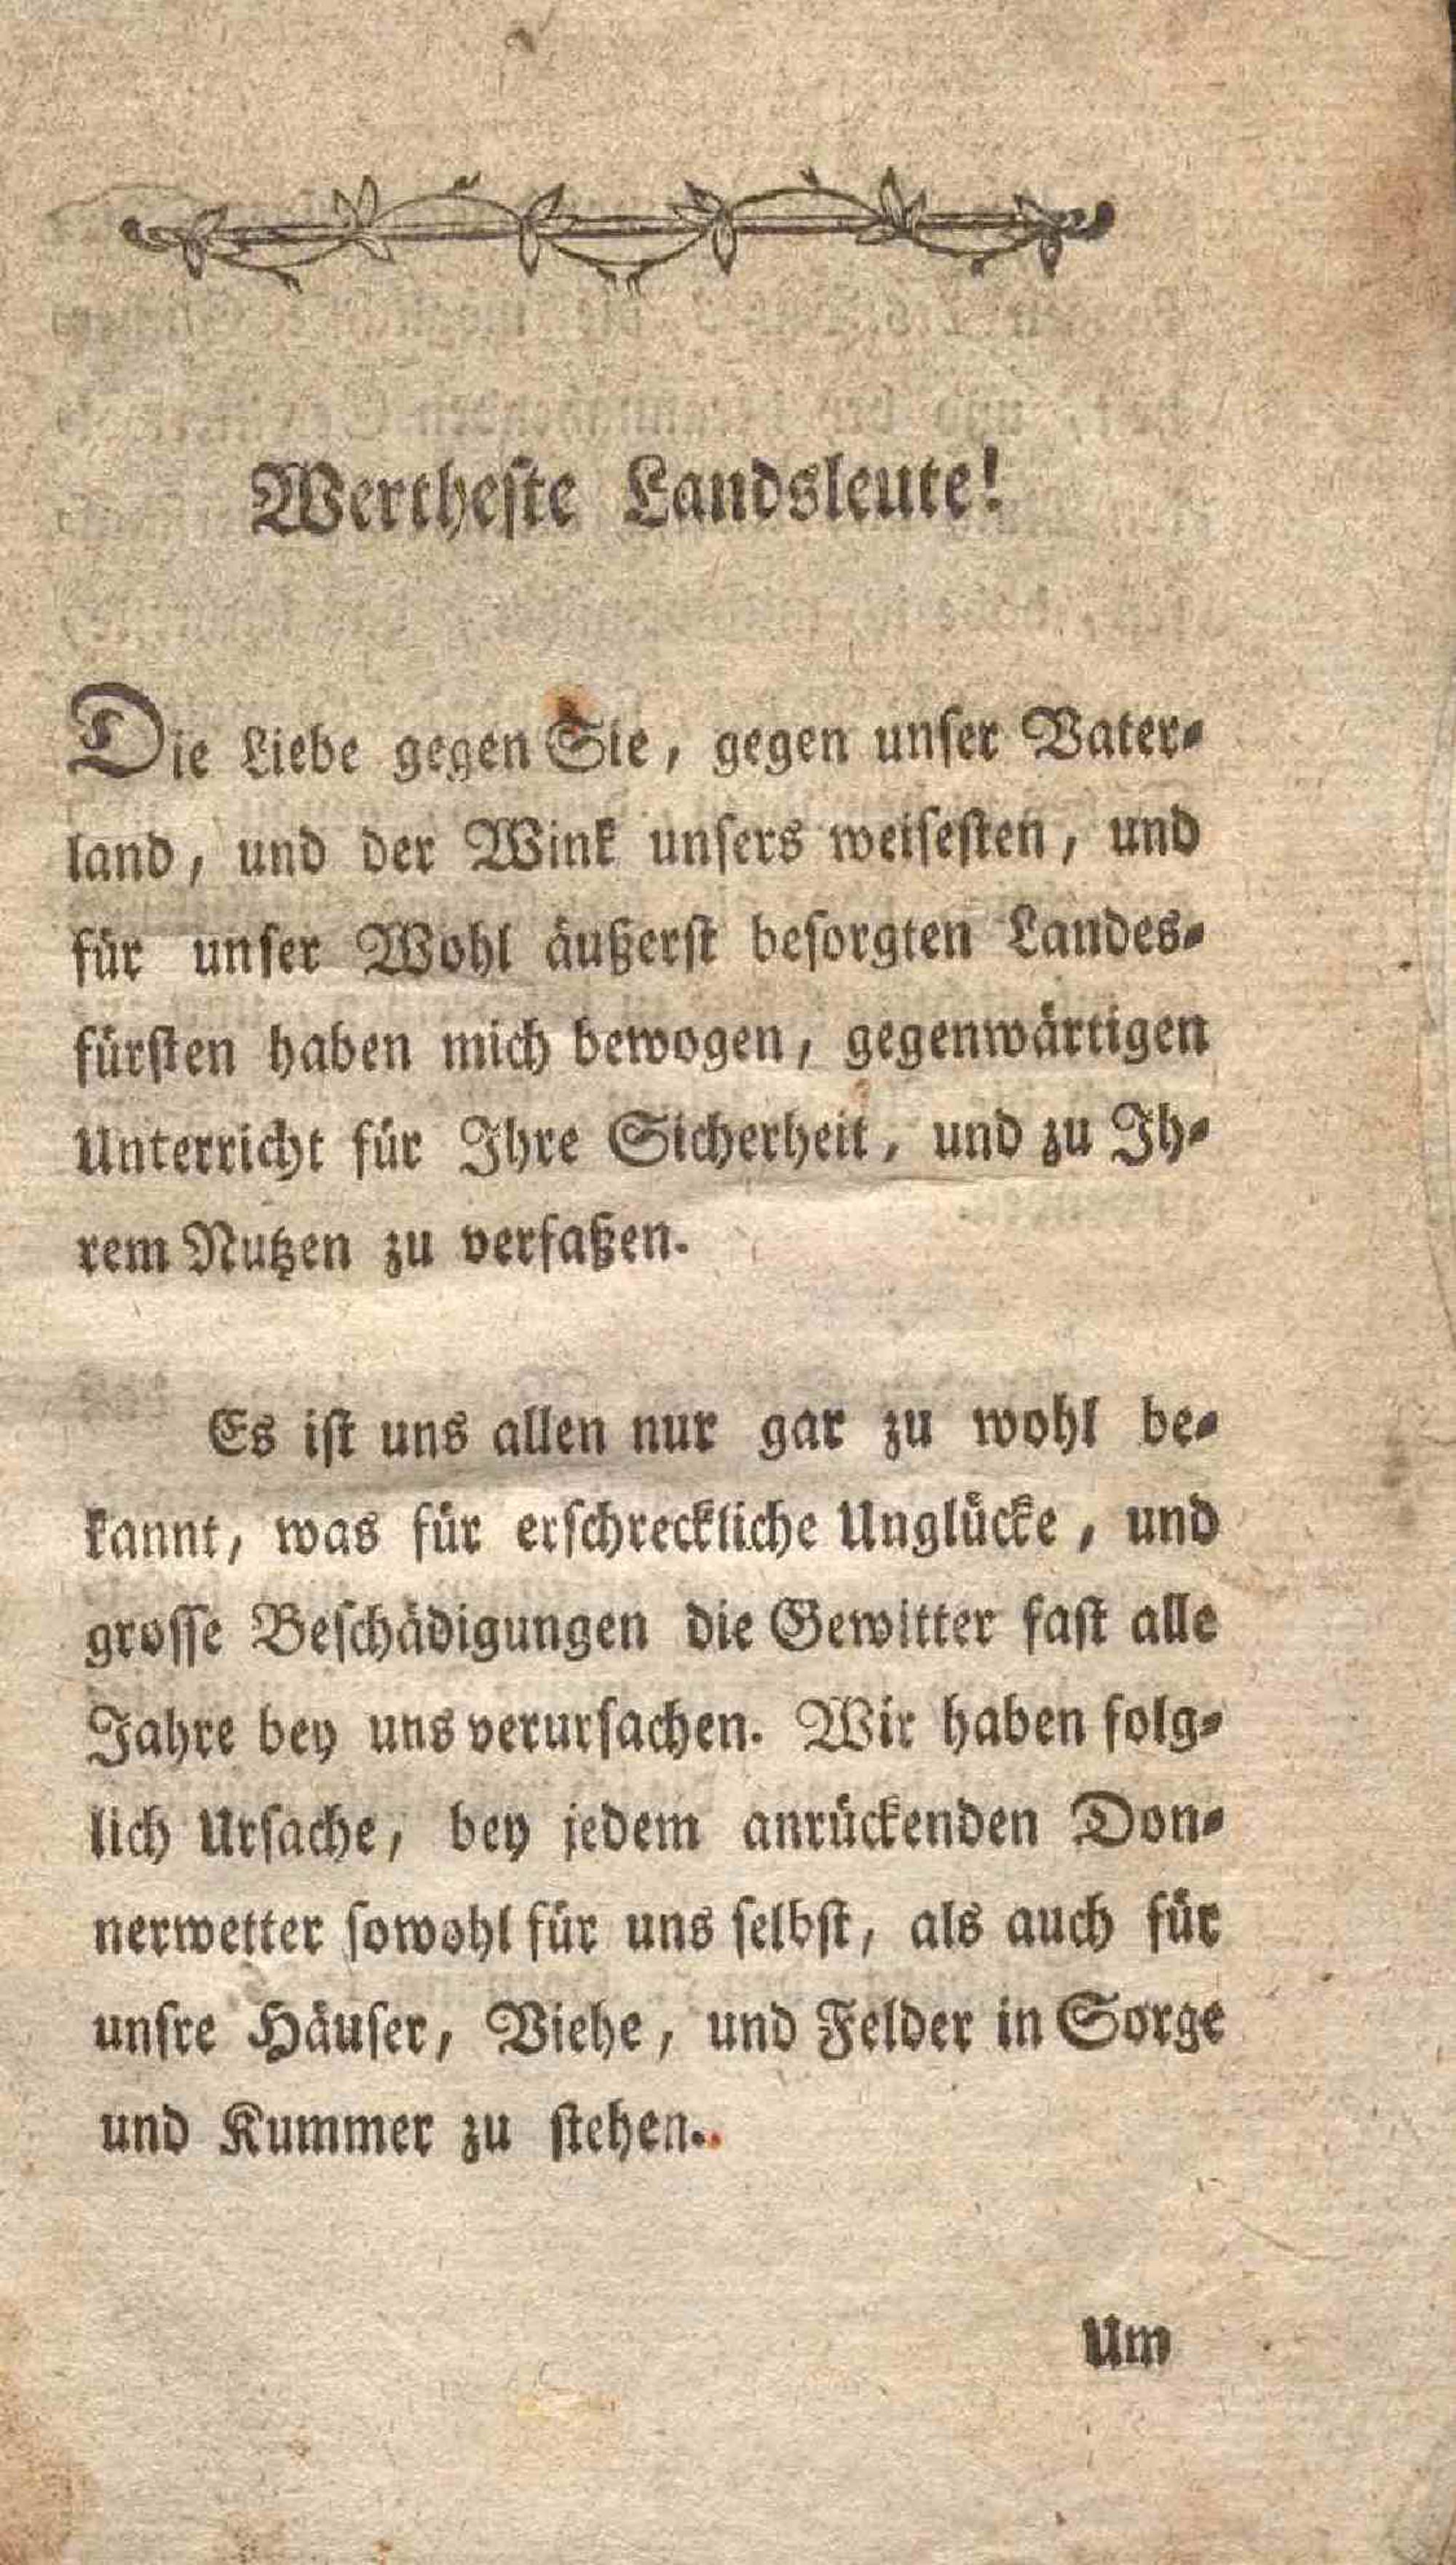 Wertheste Landsleute!
Die Liebe gegen Sie, gegen unser Vater-
land, und der Wink unsers weisesten, und
für unser Wohl äußerst besorgten Landes-
fürsten haben mich bewogen, gegenwärtigen
Unterricht für Ihre Sicherheit, und zu Ih-
rem Nutzen zu verfaßen.
Es ist uns allen nur gar zu wohl be-
kannt, was für erschreckliche Unglücke, und
grosse Beschädigungen die Gewitter fast alle
Jahre bey uns verursachen. Wir haben folg-
lich Ursache, bey jedem anrückenden Don-
nerwetter sowohl für uns selbst, als auch für
unsre Häuser, Viehe, und Felder in Sorge
und Kummer zu stehen.
Um